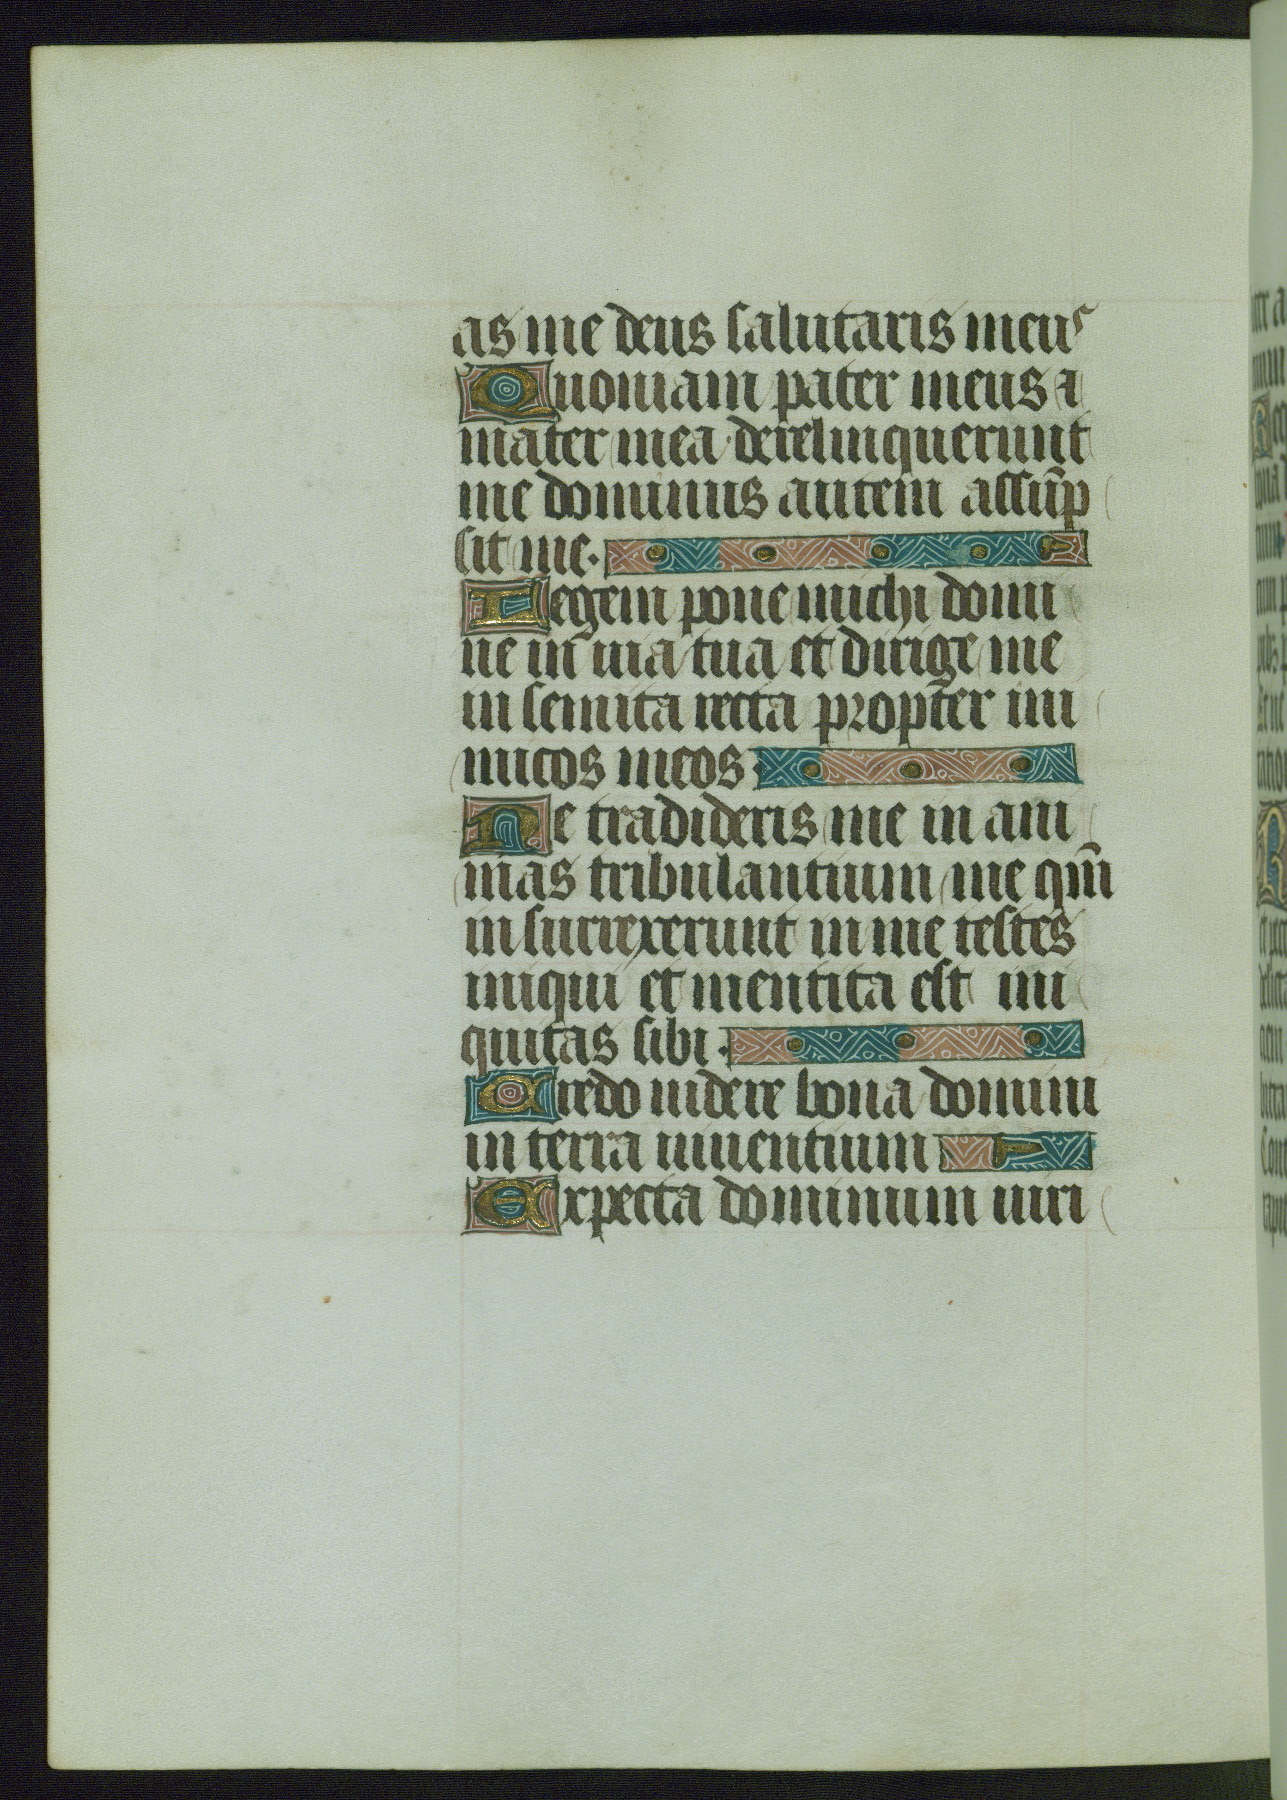 as me deus salutaris meus
Quoniam pater meus ⁊
mater mea derelinquerunt
me dominus autem assūp
sit me.
Legem pone michi domi
ne in uia tua et dirige me
in semita recta propter ini
micos meos
Ne tradideris me in ani
mas tribulantium me qm̄
insurrexerunt in me testes
iniqui et mentita est ini
quitas sibi.
Credo uidere bona domini
in terra uiuentium
Expecta dominum uiri